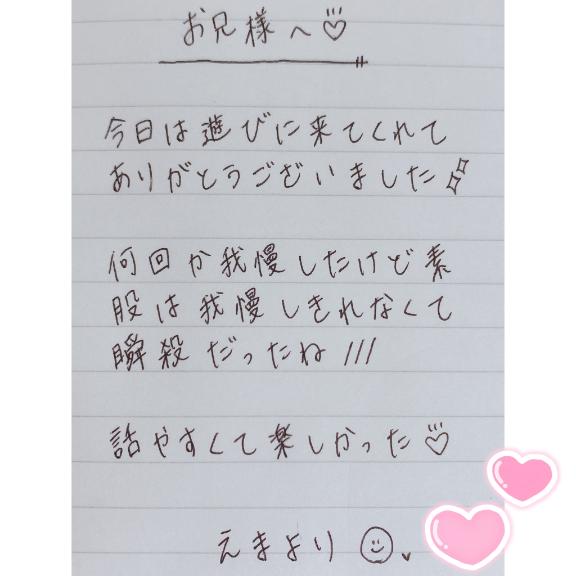 お兄様へ♡
今日は遊びに来てくれて
ありがとうございました
何回か我慢したけど素
股は我慢しきれなくて
瞬殺だったね///
話やすくて楽しかった♡
えまより